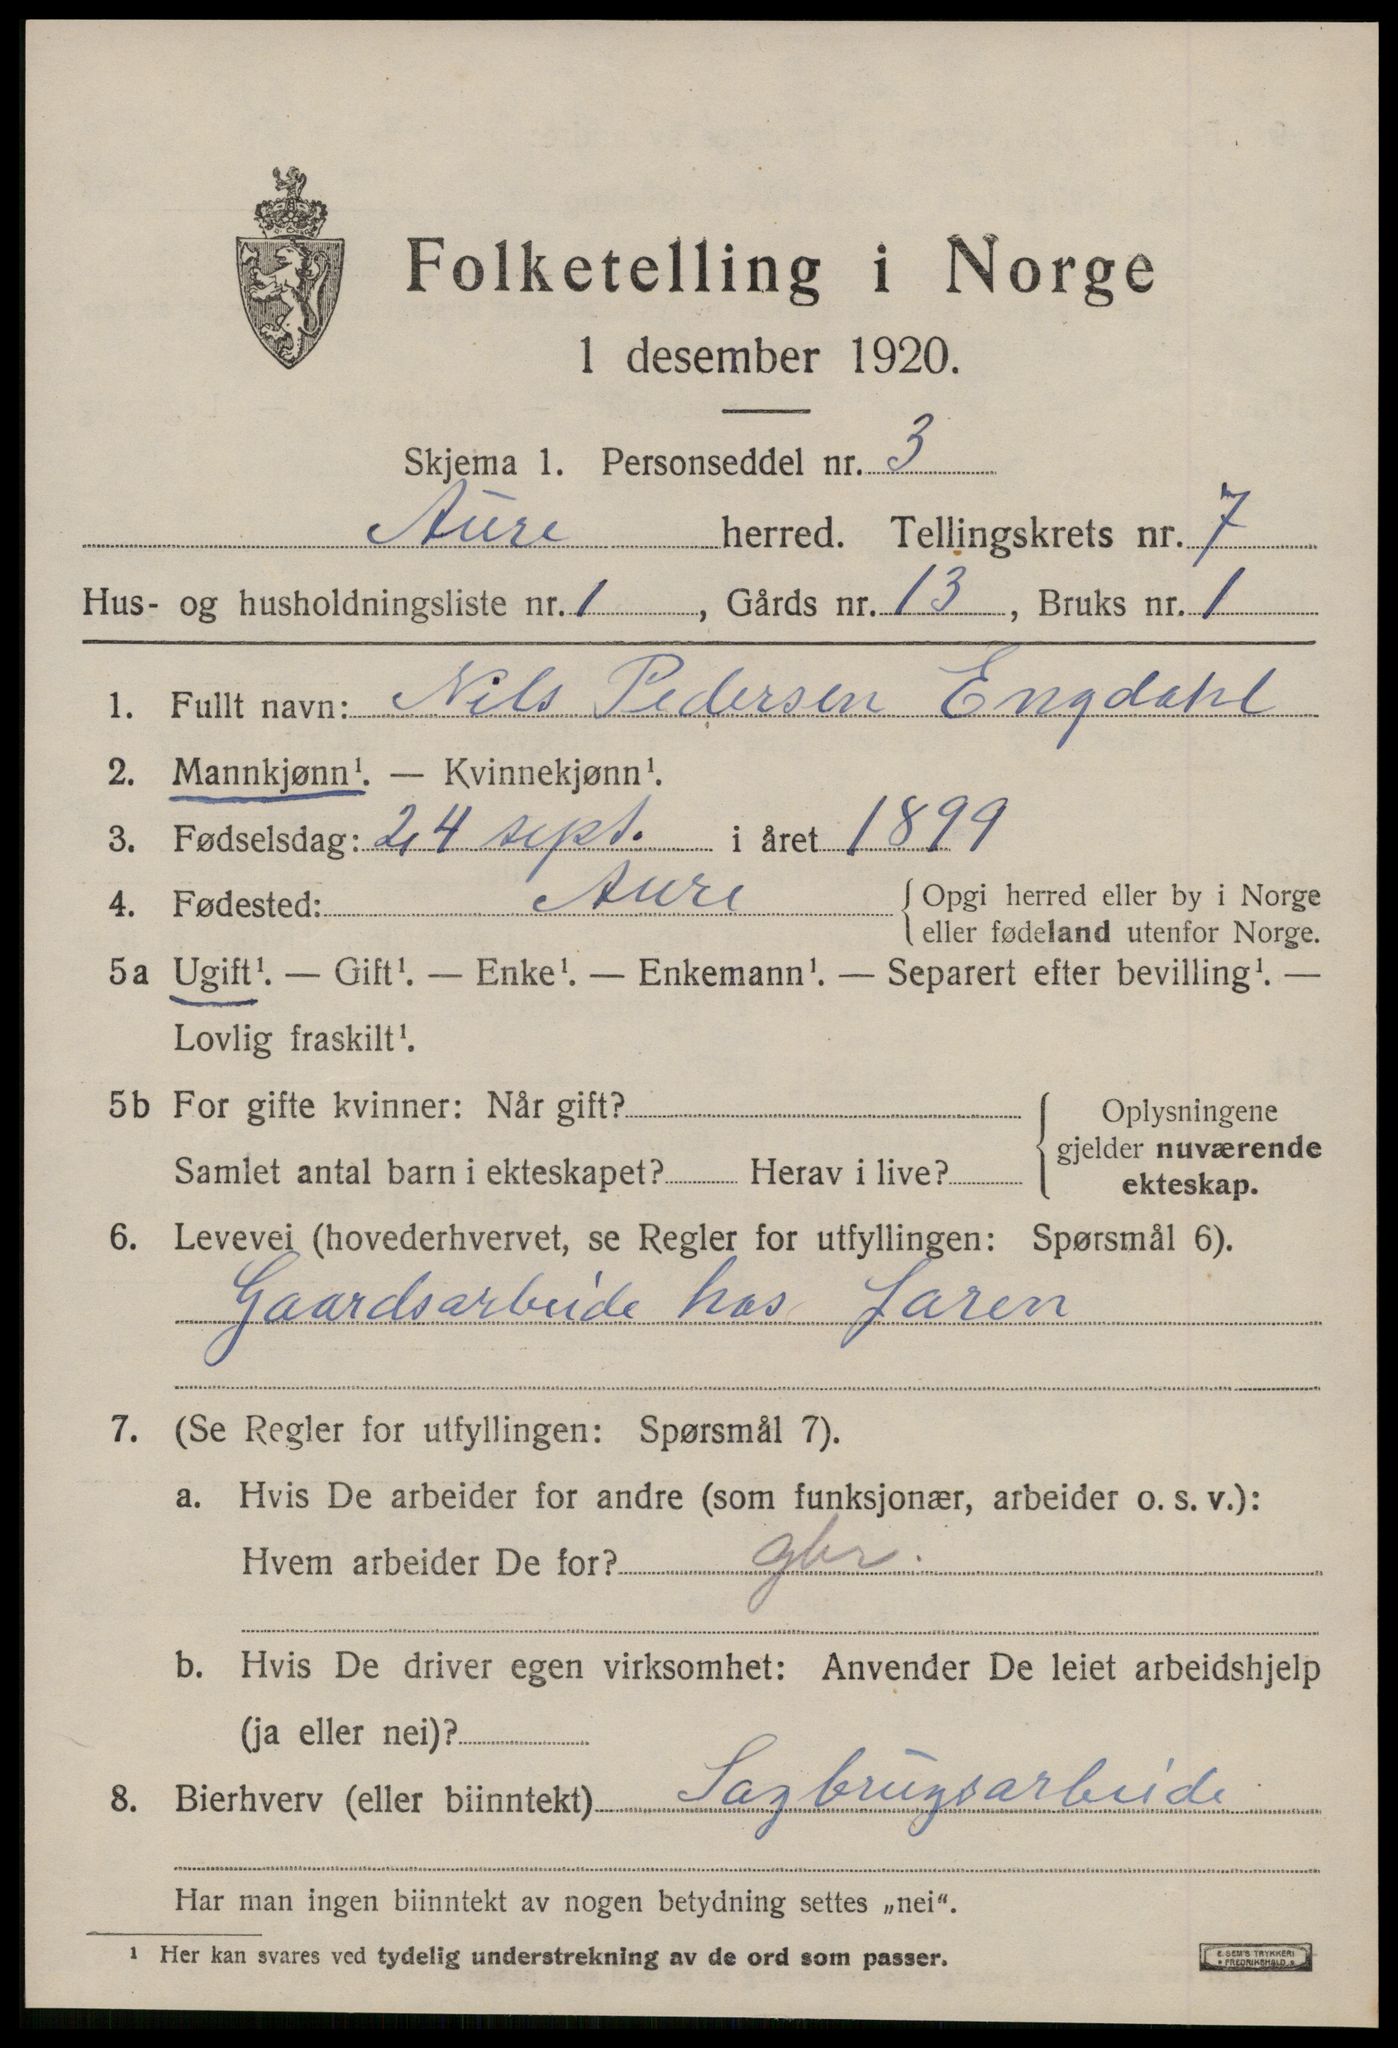 Folketelling i Norge
1 desember 1920.
Skjema 1. Personseddel nr. 3
Aure herred. Tellingskrets nr. 7
Hus- og husholdningsliste nr. 1, Gårds nr. 13, Bruks nr. 1
1. Fullt navn: Nils Pedersen Engdahl
2. Mannkjønn¹. — Kvinnekjønn¹.
3. Fødselsdag: 24 sept. i året 1899
4. Fødested: Aure {Opgi herred eller by i Norge
eller fødeland utenfor Norge.
5a Ugift¹. — Gift¹. — Enke¹. — Enkemann¹. — Separert efter bevilling¹. —
Lovlig fraskilt¹.
5b For gifte kvinner: Når gift?
Samlet antal barn i ekteskapet? Herav i live?
Oplysningene
gjelder nuværende
ekteskap.
6. Levevei (hovederhvervet, se Regler for utfyllingen: Spørsmål 6).
Gaardsarbeide hos faren
7. (Se Regler for utfyllingen: Spørsmål 7).
a. Hvis De arbeider for andre (som funksjonær, arbeider o. s. v.):
Hvem arbeider De for? gbr.
b. Hvis De driver egen virksomhet: Anvender De leiet arbeidshjelp
(ja eller nei)?
8. Bierhverv (eller biinntekt) Sagbrugsarbeide
Har man ingen biinntekt av nogen betydning settes „nei“.
¹ Her kan svares ved tydelig understrekning av de ord som passer.
E. SEM'S TRYKKERI
FREDRIKSHALD